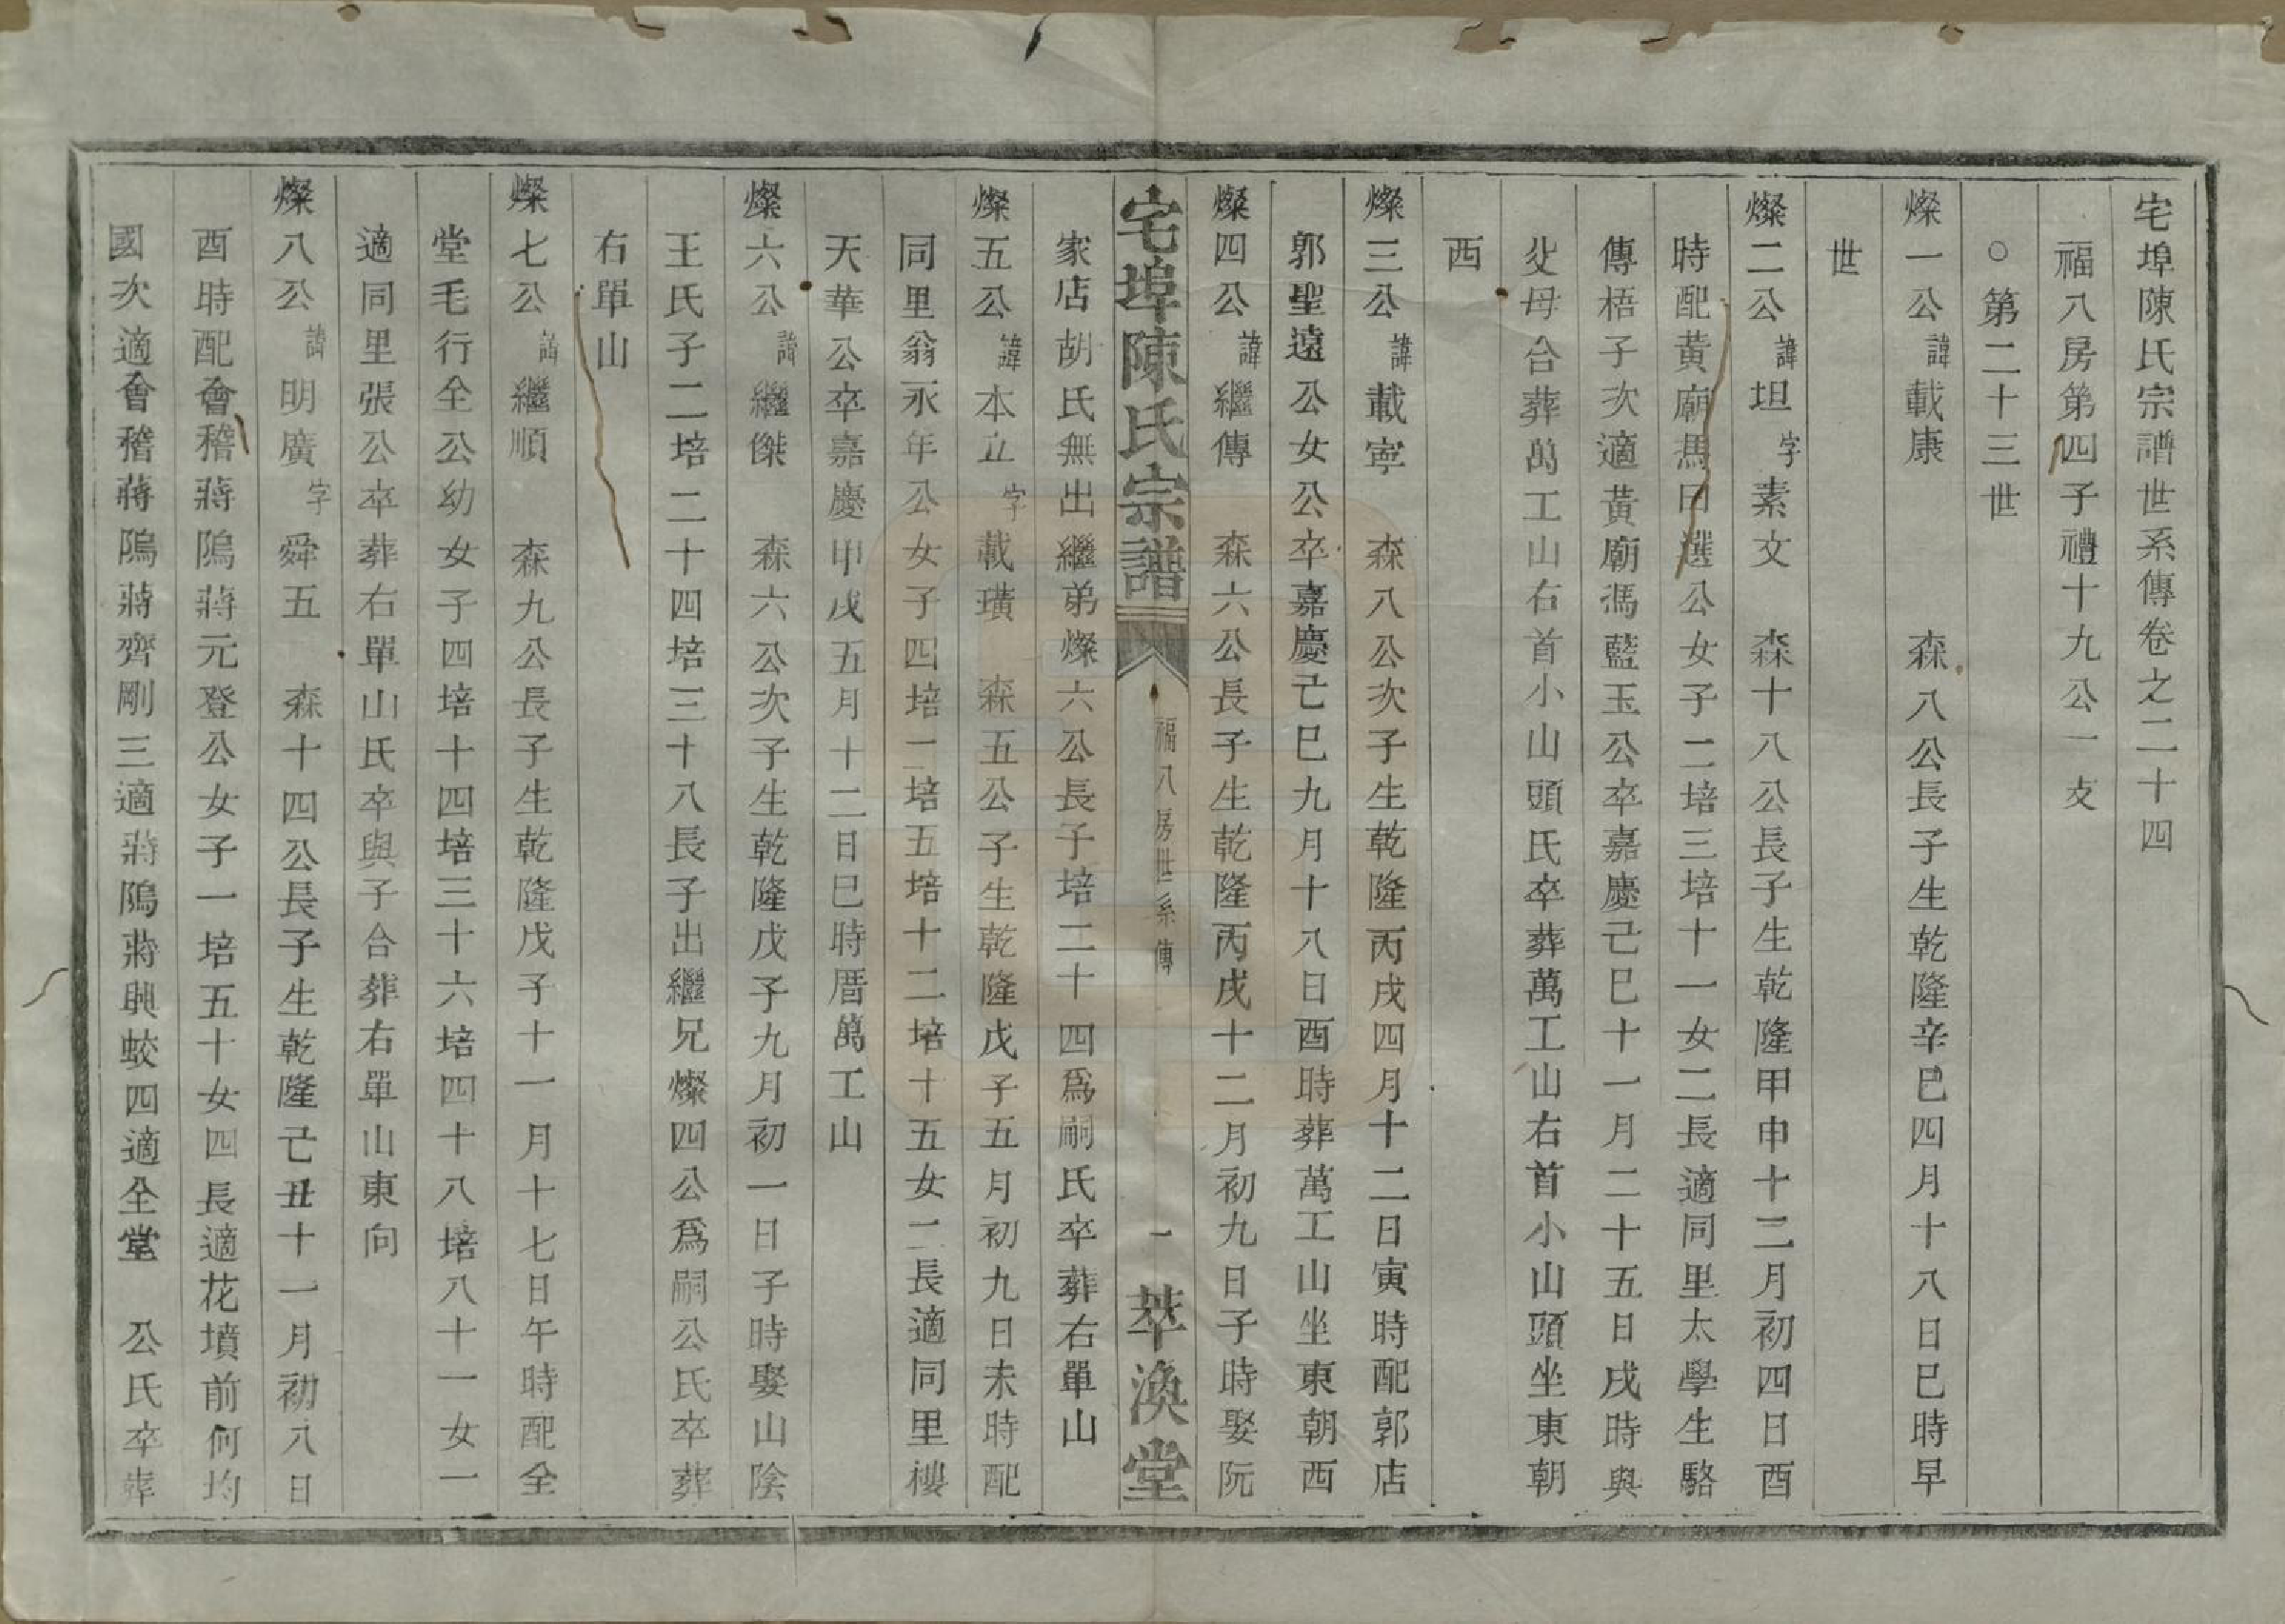 宅埠陳氏宗譜世系傳卷之二十四
福八房第四子禮十九公一支
○第二十三世
燦一公諱載康 森八公長子生乾隆辛巳四月十八日巳時早
世
燦二公諱坦字素文 森十八公長子生乾隆甲申十二月初四日酉
時配黃廟馮曰選公女子二培三培十一女二長適同里太學生駱
傳梧子次適黃廟馮藍玉公卒嘉慶己巳十一月二十五日戌時與
父母合葬萬工山右首小山頭氏卒葬萬工山右首小山頭坐東朝
西
燦三公諱載寧 森八公次子生乾隆丙戌四月十二日寅時配郭店
郭聖遠公女公卒嘉慶己巳九月十八日酉時葬萬工山坐東朝西
燦四公諱繼傳 森六公長子生乾隆丙戌十二月初九日子時娶阮
家店胡氏無出繼弟燦六公長子培二十四為嗣氏卒葬右單山
宅埠陳氏宗譜 福八房世系傳 一 萃渙堂
燦五公諱本立字載璜 森五公子生乾隆戊子五月初九日未時配
同里翁永年公女子四培二培五培十二培十五女二長適同里樓
天華公卒嘉慶甲戌五月十二日巳時厝萬工山
燦六公諱繼傑 森六公次子生乾隆戊子九月初一日子時娶山陰
王氏子二培二十四培三十八長子出繼兄燦四公為嗣公氏卒葬
右單山
燦七公諱繼順 森九公長子生乾隆戊子十一月十七日午時配全
堂毛行全公幼女子四培十四培三十六培四十八培八十一女一
適同里張公卒葬右單山氏卒與子合葬右單山東向
燦八公諱明廣字舜五 森十四公長子生乾隆己丑十一月初八日
酉時配會稽蔣隖蔣元登公女子一培五十女四長適花墳前何均
國次適會稽蔣隖蔣齊剛三適蔣隖蔣興蛟四適全堂 公氏卒葬